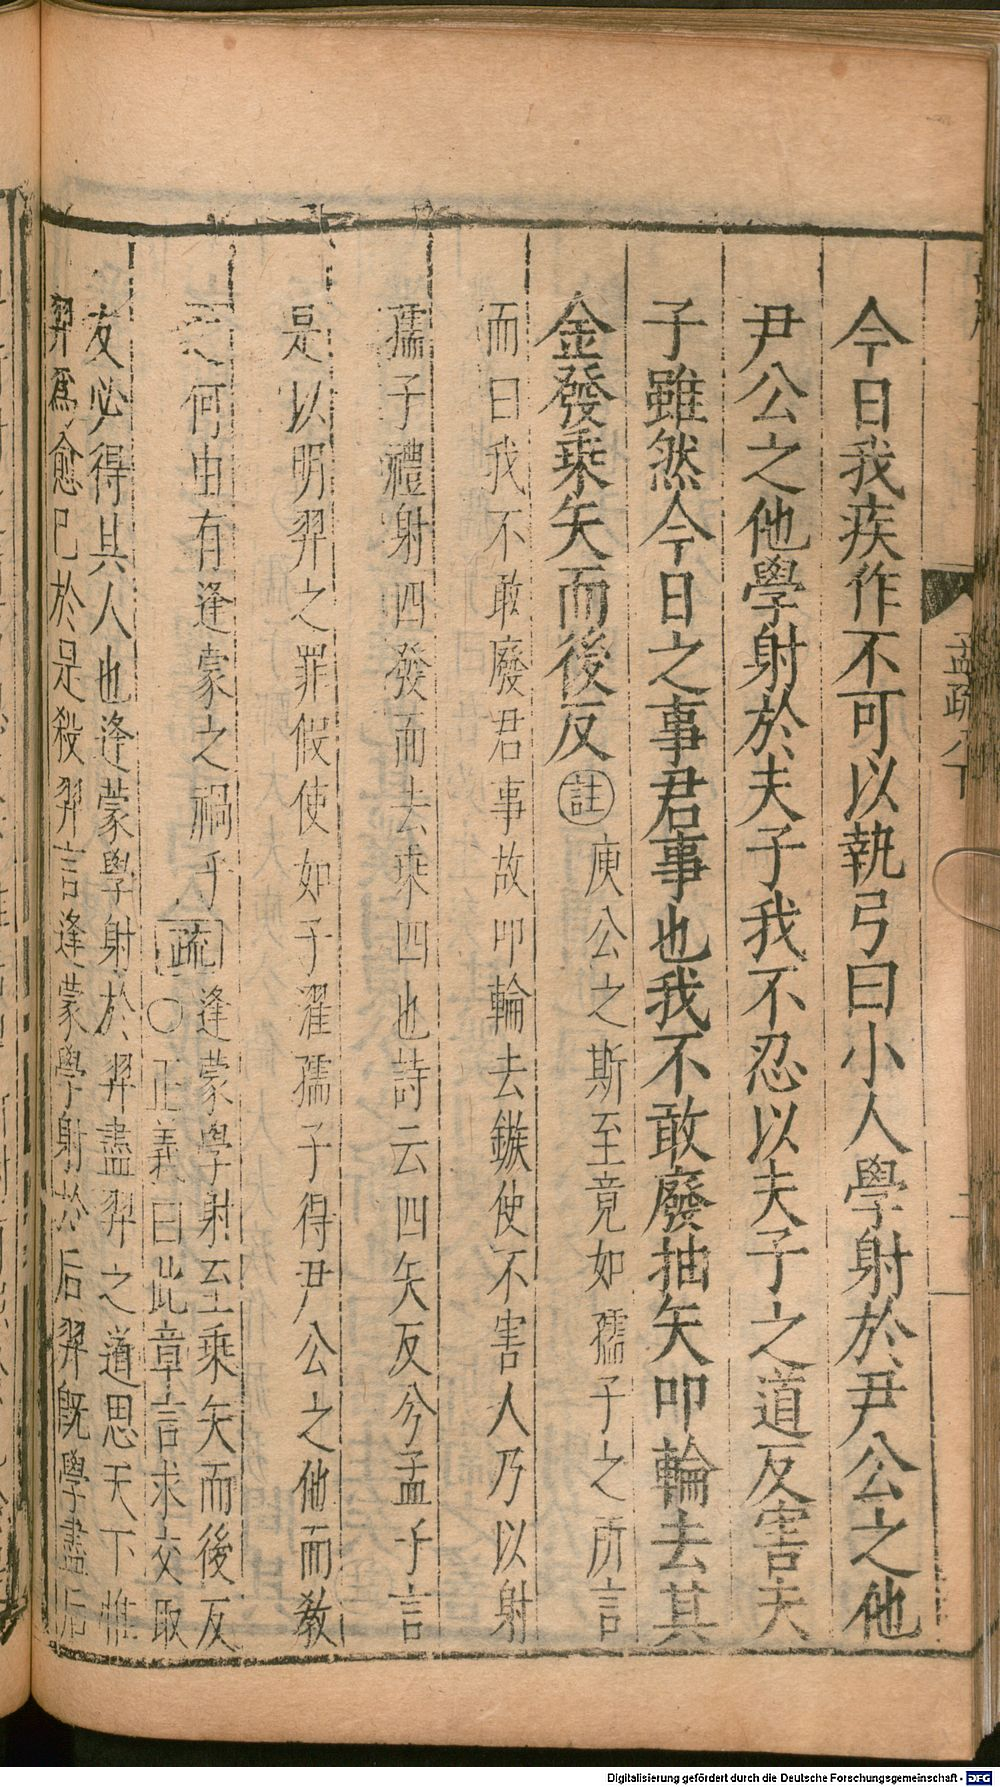 孟疏八下
今日我疾作不可以執弓曰小人學射於尹公之他
尹公之他學射於夫子我不忍以夫子之道反害夫
子雖然今日之事君事也我不敢廢抽矢叩輪去其
金發乘矢而後反註庾公之斯至竟如孺子之所言
而曰我不敢廢君事故叩輪去鏃使不害人乃以射
孺子禮射四發而去乘四也詩云四矢反兮孟子言
是以明羿之罪假使如子濯孺子得尹公之他而教
之何由有逢蒙之禍乎疏逢蒙學射至乘矢而後反
○正義曰此章言求交取
友必得其人也逢蒙學射於羿盡羿之道思天下惟
羿爲愈已於是殺羿言逢蒙學射於后羿旣學盡后
Digitalisierung gefördert durch die Deutsche Forschungsgemeinschaft - DFG